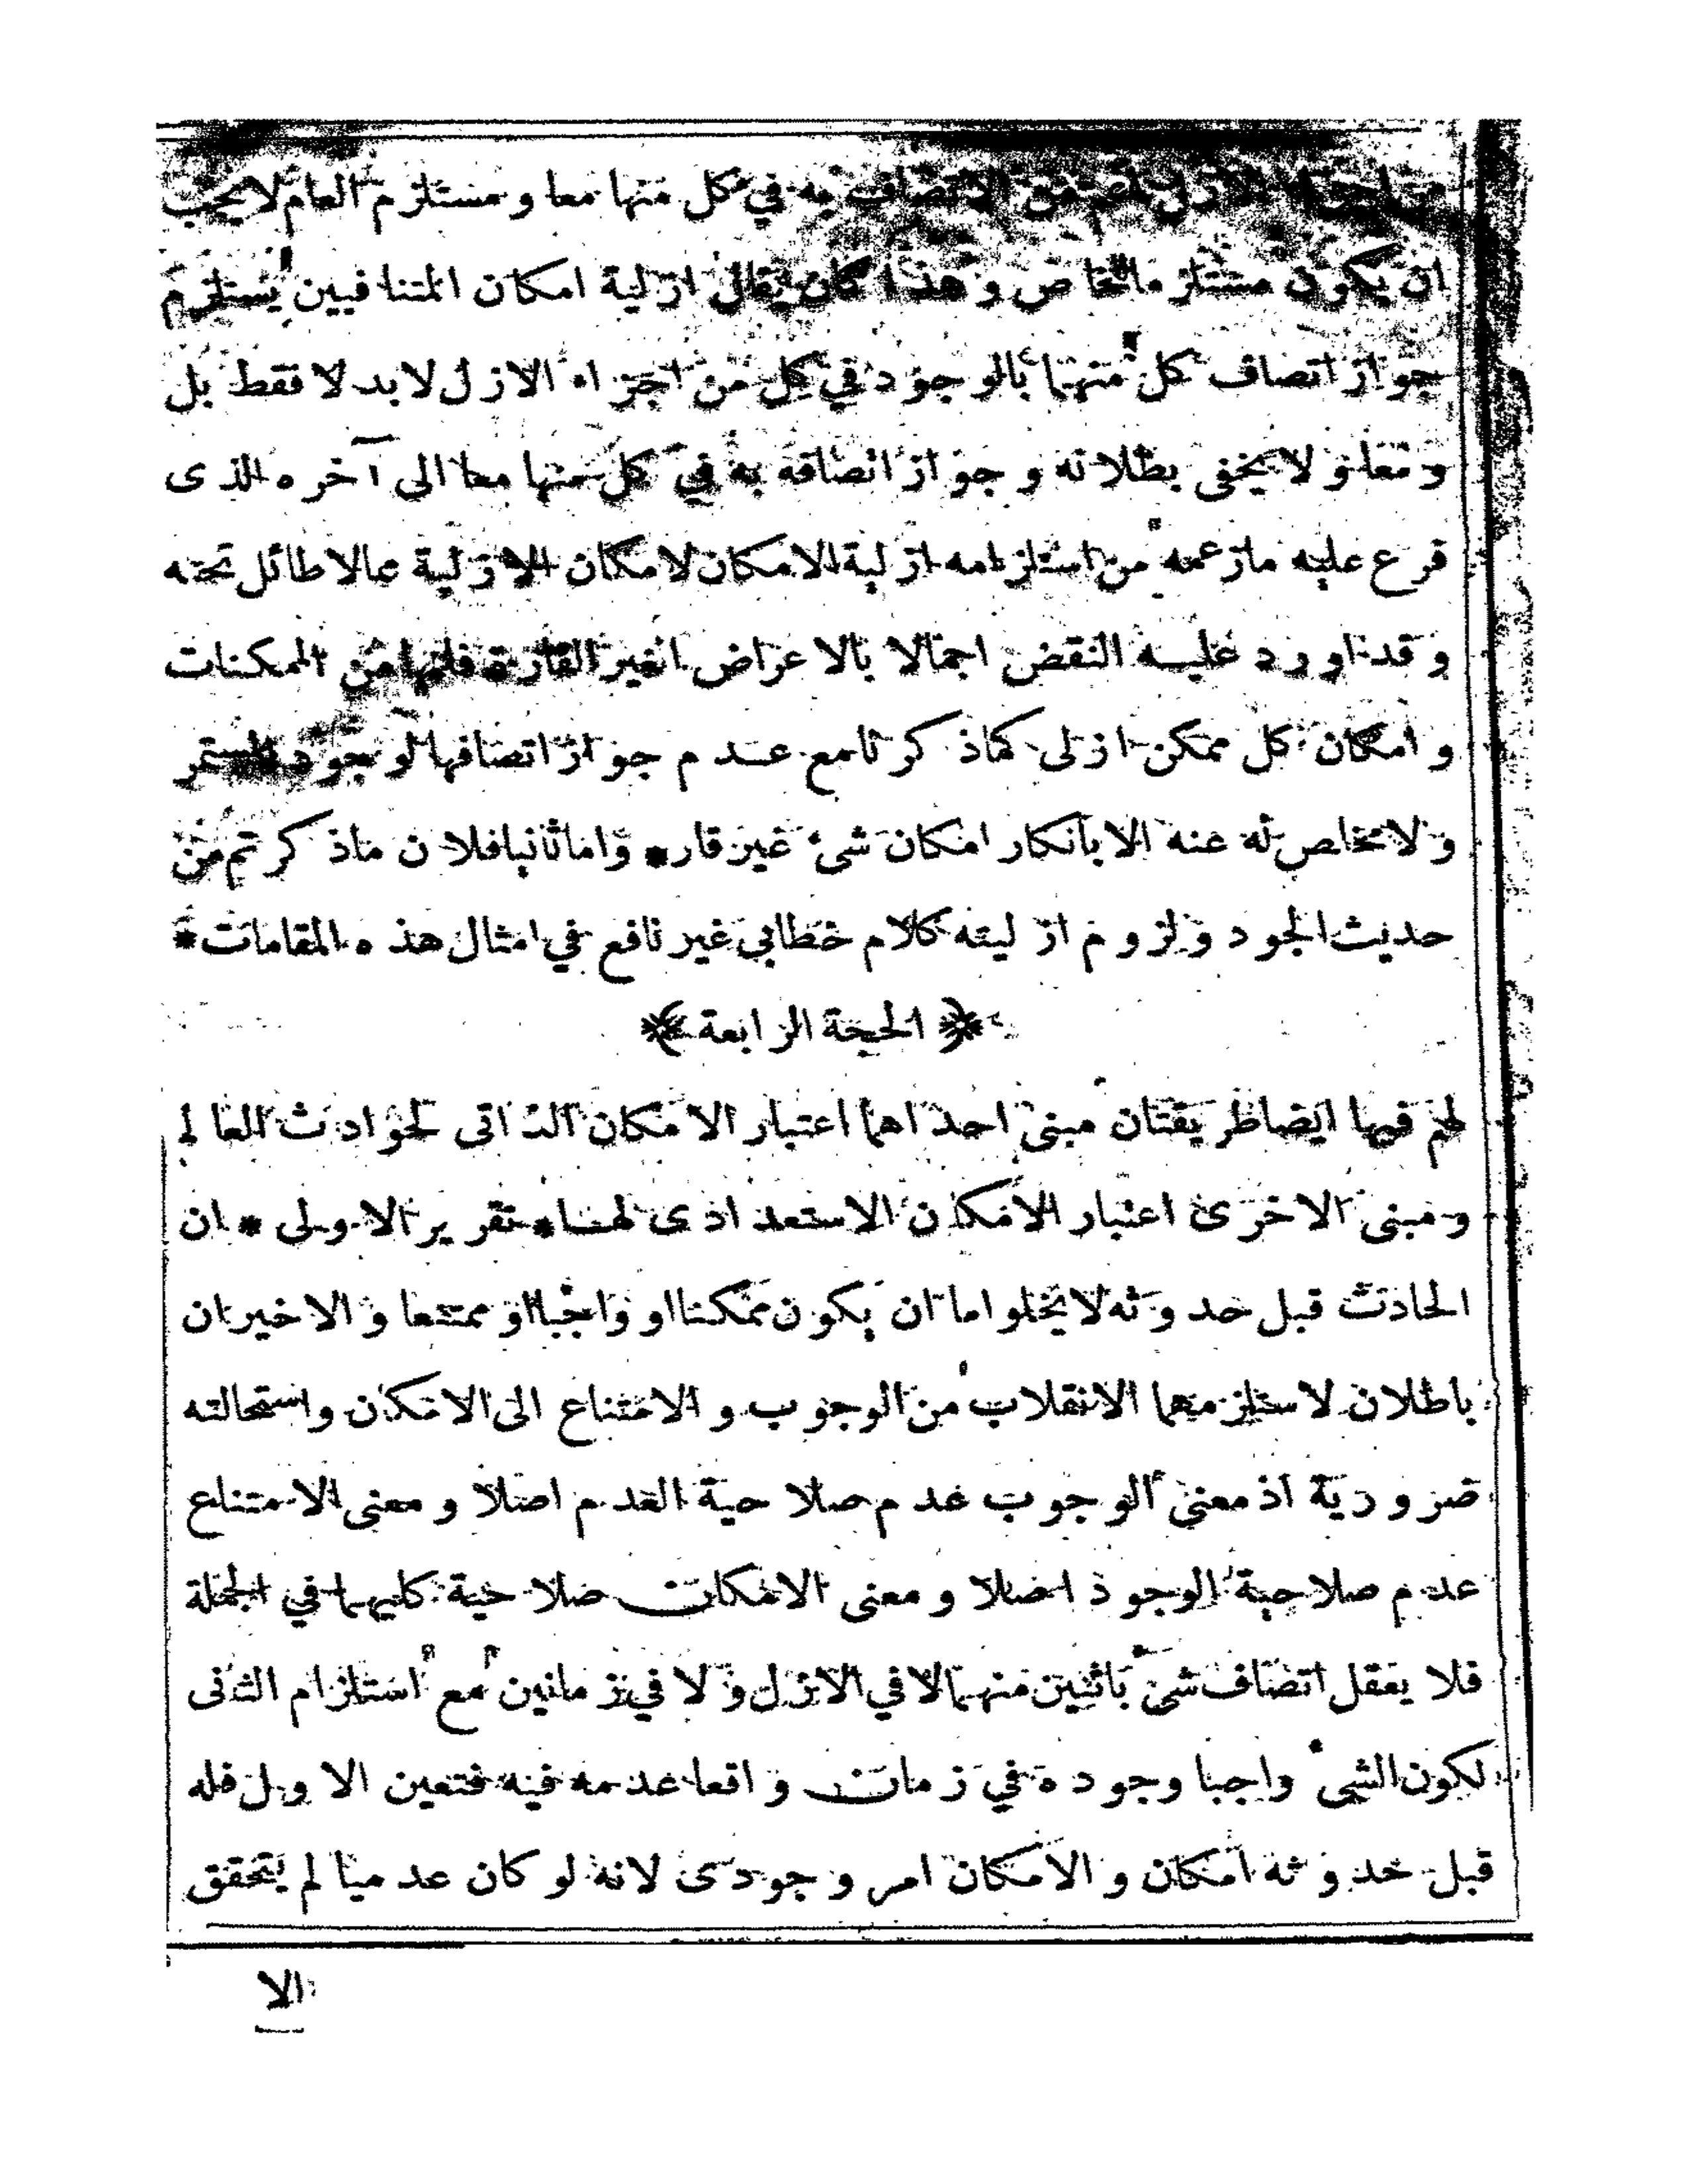 من اجزاء الازل اعم من الاتصاف به في كل منها معا و مستلزم العام لا يجب
ان يكون مستلزما للخاص و هذا كان يقال ازلية امكان المتنافيين يستلزم
جواز اتصاف كل منهما بالوجود في كل من اجزاء الازل لا بدلا فقط بل
و معا و لا يخفى بطلانه و جواز اتصافه به في كل منها معا الى آخره الذى
فرع عليه ما زعمه من استلزامه ازلية الامكان لامكان الازلية مما لا طائل تحته
و قد اورد عليه النقض اجمالا بالاعراض الغير القارة فانها من الممكنات
و امكان كل ممكن ازلى كما ذكرنا مع عدم جواز اتصافها لوجود المستمر
و لا مخلص له عنه الا بانكار امكان شئ غير قار * و اما ثانيا فلان ما ذكرتم من
حديث الجود و لزوم ازليته كلام خطابي غير نافع في امثال هذه المقامات *
﴿ الحجة الرابعة ﴾
لهم فيها ايضا طريقتان مبنى احداهما اعتبار الامكان الذاتى لحوادث العالم
و مبنى الاخرى اعتبار الامكان الاستعدادى لهما * تقرير الاولى * ان
الحادث قبل حدوثه لا يخلو اما ان يكون ممكنا او واجبا او ممتنعا و الاخيران
باطلان لاستلزامهما الانقلاب من الوجوب و الامتناع الى الامكان و استحالته
ضرورية اذ معنى الوجوب عدم صلاحية العدم اصلا و معنى الامتناع
عدم صلاحية الوجود اصلا و معنى الامكان صلاحية كليهما في الجملة
فلا يعقل اتصاف شئ باثنين منهما لا في الازل و لا في زمانين مع استلزام الثانى
لكون الشئ واجبا وجوده في زمان و اقعا عدمه فيه فتعين الاول فله
قبل حدوثه امكان و الامكان امر وجودى لانه لو كان عدميا لم يتحقق
الا